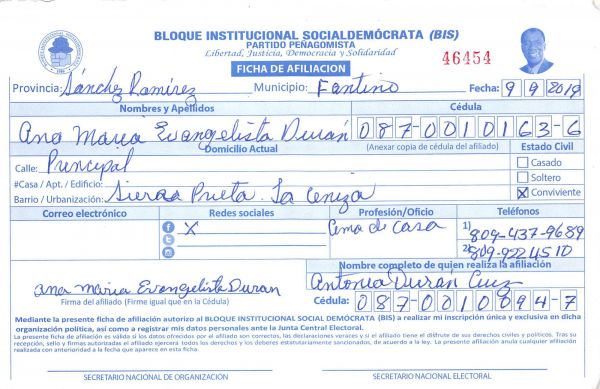 BLOQUE INSTITUCIONAL SOCIALDEMÓCRATA (BIS)
PARTIDO PEÑAGOMISTA
Libertad, Justicia, Democracia y Solidaridad
46454
FICHA DE AFILIACION
Provincia: Sánchez Ramírez Municipio: Fantino Fecha: 9 9 2019
Nombres y Apellidos Cédula
Ana Maria Evangelista Durán 087-0010163-6
Domicilio Actual (Anexar copia de cédula del afiliado) Estado Civil
Calle: Principal Casado
#Casa / Apt. / Edificio: Soltero
Barrio / Urbanización: Sierra Prieta. La Ceniza X Conviviente
Correo electrónico Redes sociales Profesión/Oficio Teléfonos
X Ama de casa 1) 809-437-9689
2) 809-922-4510
Nombre completo de quien realiza la afiliación
ana Maria Evangelista Duran Antonia Durán Cruz
Firma del afiliado (Firme igual que en la Cédula) Cédula: 087-0010094-7
Mediante la presente ficha de afiliación autorizo al BLOQUE INSTITUCIONAL SOCIAL DEMÓCRATA (BIS) a realizar mi inscripción única y exclusiva en dicha
organización política, así como a registrar mis datos personales ante la Junta Central Electoral.
La presente ficha de afiliación es válida si los datos ofrecidos por el afiliado son correctos, las declaraciones veraces y si el afiliado tiene el disfrute de sus derechos civiles y políticos. Tras su
recepción, sello y firmas autorizadas el afiliado ejercerá todos los derechos y los deberes estatutariamente sancionados, de acuerdo a la ley. La presente afiliación anula cualquier afiliación
realizada con anterioridad a la fecha que aparece en esta ficha.
SECRETARIO NACIONAL DE ORGANIZACIÓN SECRETARIO NACIONAL ELECTORAL